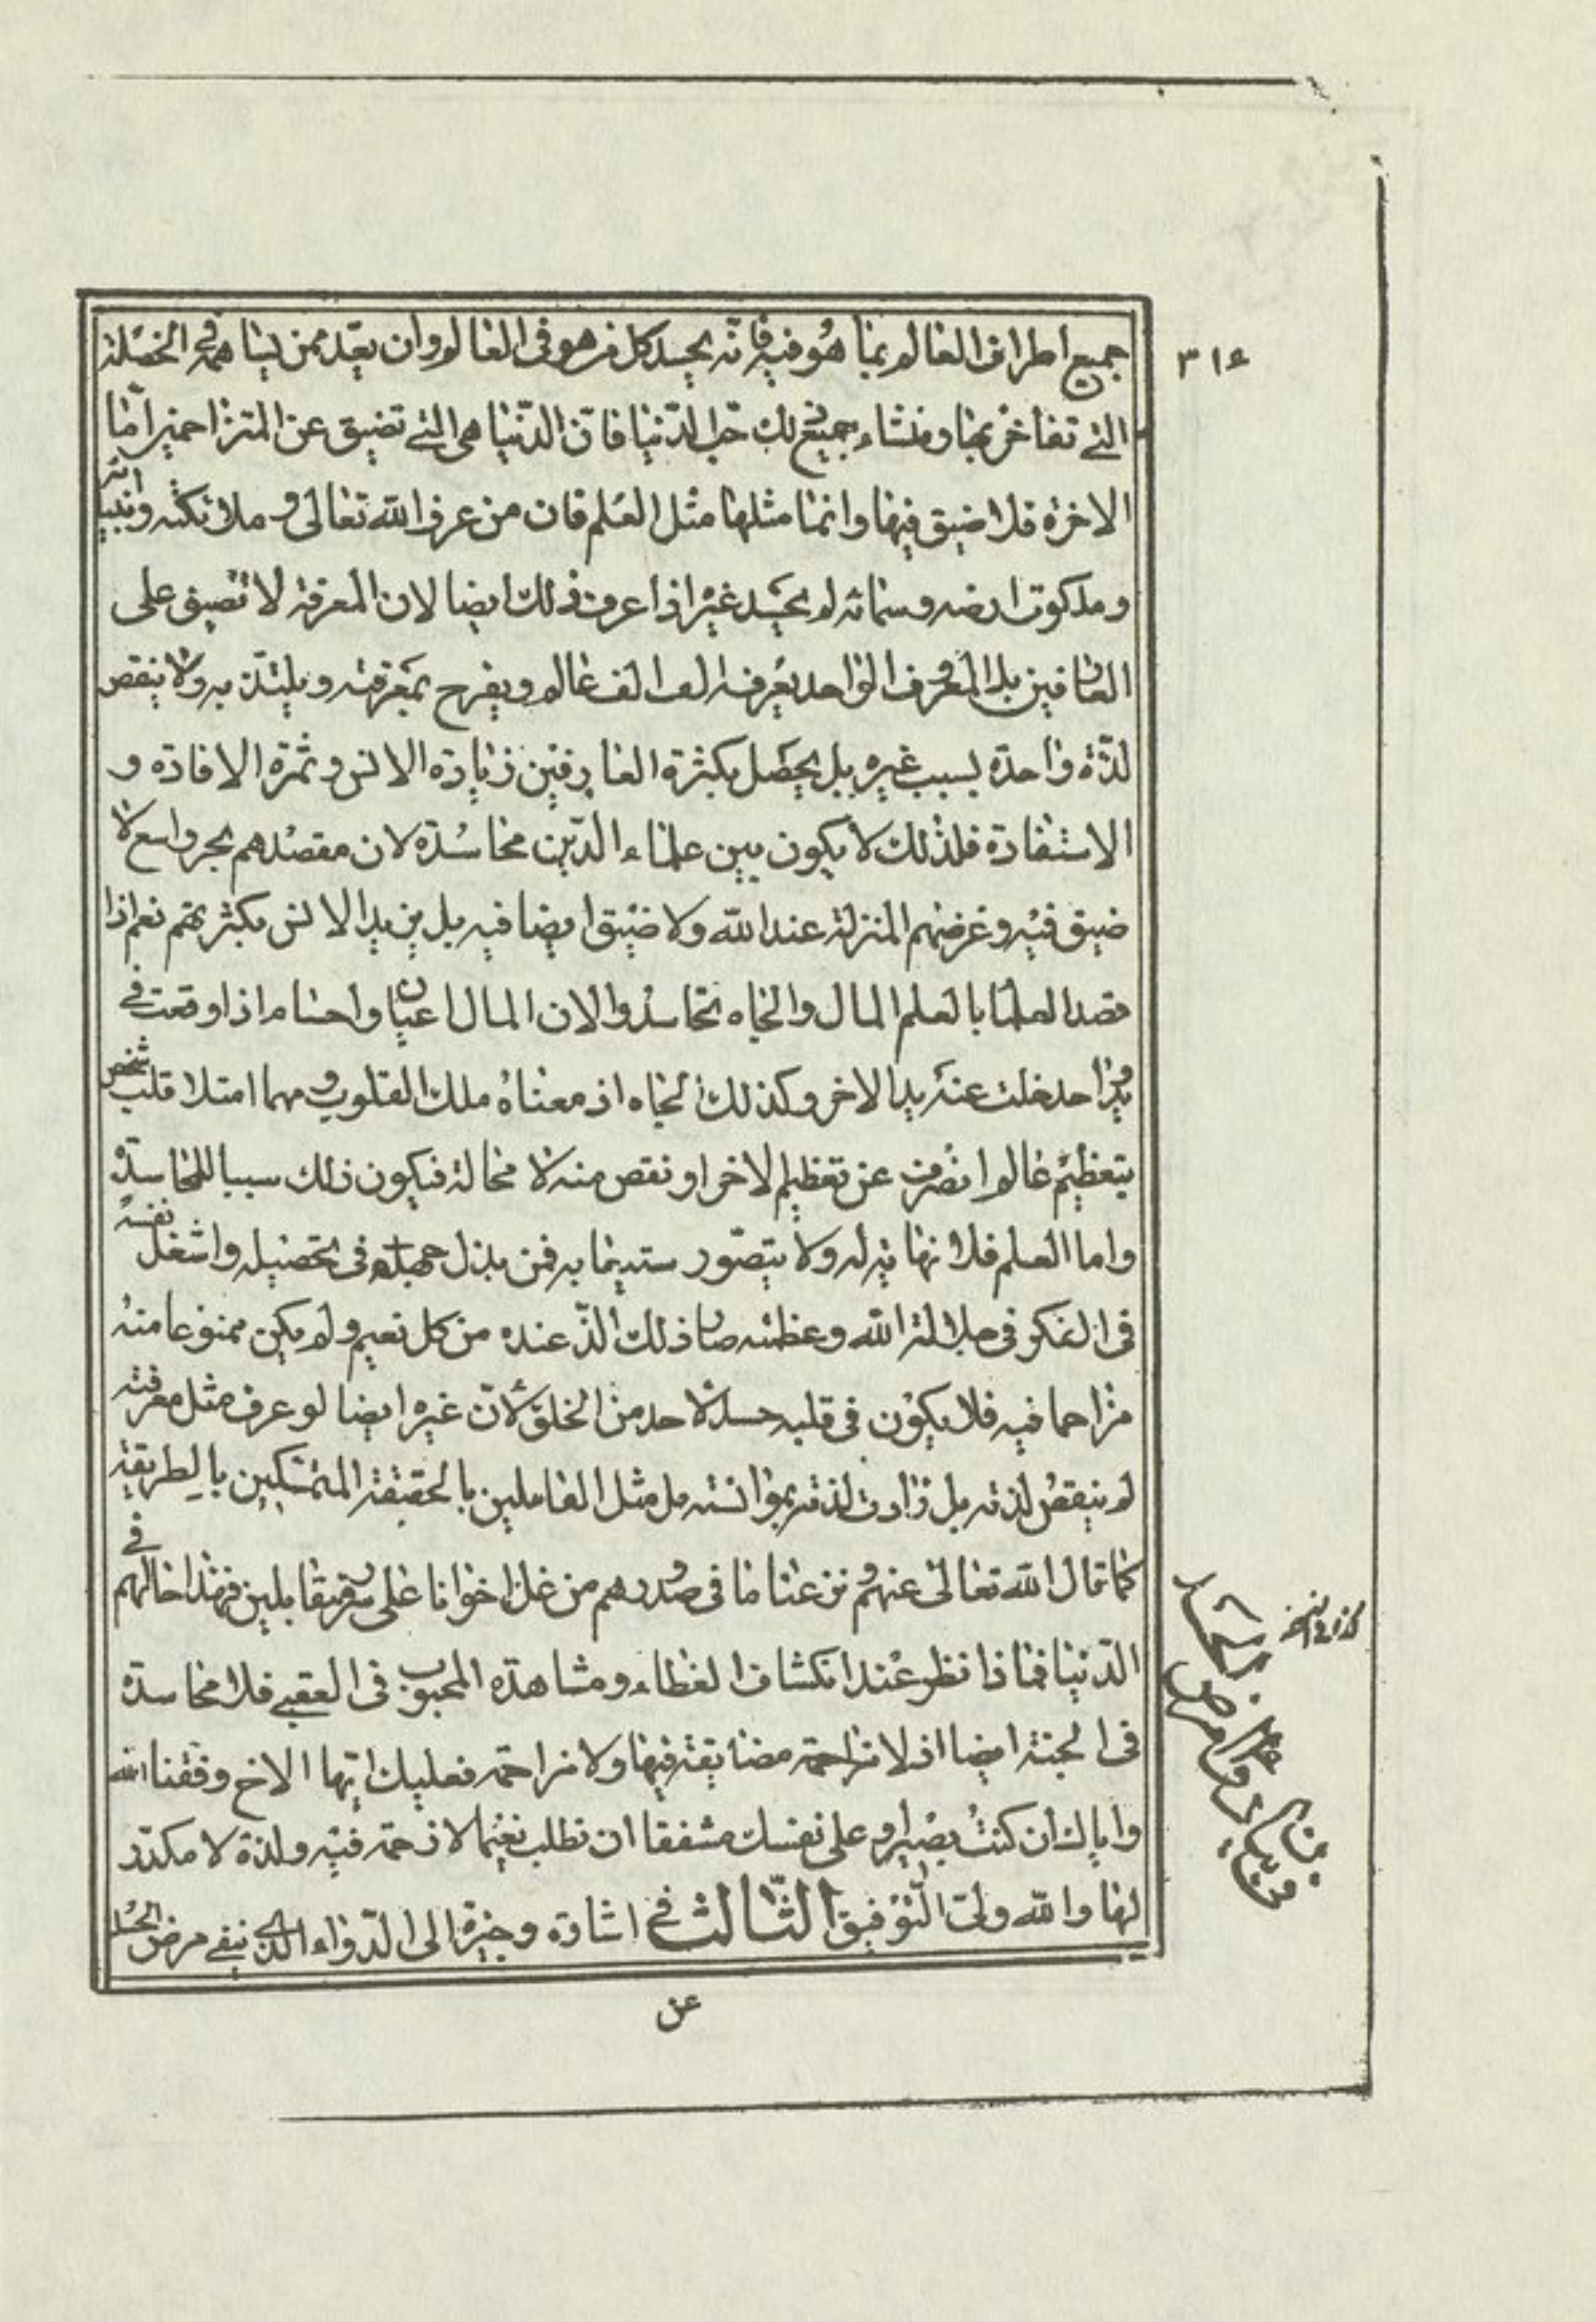 ٣١٤
جميع اطراف العالم بما هو فيه فانه يحسد كل من هو فى العالم وان بعد ممن يساهمه فى الخصلة
التى تفاخر بها ومنشاء جميع ذلك حب الدنيا فان الدنيا هى التى تضيق عن المتزاحمين امّا
الاخرة فلا ضيق فيها وانما مثلها مثل العلم فان من عرف الله تعالى و ملائكته وانبيائه
و ملكوت ارضه وسمائه لم يحسد غيره اذا عرف ذلك ايضا لان المعرفة لا تضيق على
العارفين بل المعروف الواحد يعرفه الف الف عالم ويفرح بمعرفته ويلتذ به ولا ينقص
لذّة واحدة بسبب غيره بل يحصل بكثرة العارفين زيادة الانس وثمرة الافادة و
الاستفادة فلذلك لا يكون بين علماء الدين محاسدة لان مقصدهم بحر واسع لا
ضيق فيه وغرضهم المنزلة عند الله ولا ضيق ايضا فيه بل يزيد الانس بكثرتهم نعم اذا
قصد العلما بالعلم المال والجاه تحاسدوا لان المال اعيان واجسام اذا وقعت فى
يد واحد خلت عنه يد الاخر وكذلك الجاه اذ معناه ملك القلوب ومهما امتلا قلب شخص
بتعظيم عالم انصرف عن تعظيم الاخر او نقص منه لا محالة فيكون ذلك سببا للمحاسدة
واما العلم فلا نهاية له ولا يتصور استيعابه فمن بذل جهده فى تحصيله واشغل نفسه
فى الفكر فى جلالة الله وعظمته صار ذلك الذّ عنده من كل نعيم ولم يكن ممنوعا منه
مزاحما فيه فلا يكون فى قلبه حسد لاحد من الخلق لانّ غيره ايضا لو عرف مثل معرفته
لم ينقص لذته بل زادت لذته بموانسته بل مثل العاملين بالحقيقة المتمسكين بالطريقة
كما قال الله تعالى عنهم ونزعنا ما فى صدورهم من غل اخوانا على سرر متقابلين فهذا حالهم فى
الدنيا فماذا نظر عند انكشاف الغطاء ومشاهدة المحبوب فى العقبى فلا محاسدة
فى الجنة ايضا اذ لا مزاحمة مضايقة فيها ولا مزاحمة فعليك ايّها الاخ وفقنا الله
واياك ان كنت بصيرا وعلى نفسك مشفقا ان تطلب نعيما لا زحمة فيه ولذة لا مكدّر
لها والله ولىّ التوفيق الثالث فى اشارة وجيزة الى الدواء الذى ينفى مرض الحسد
عن